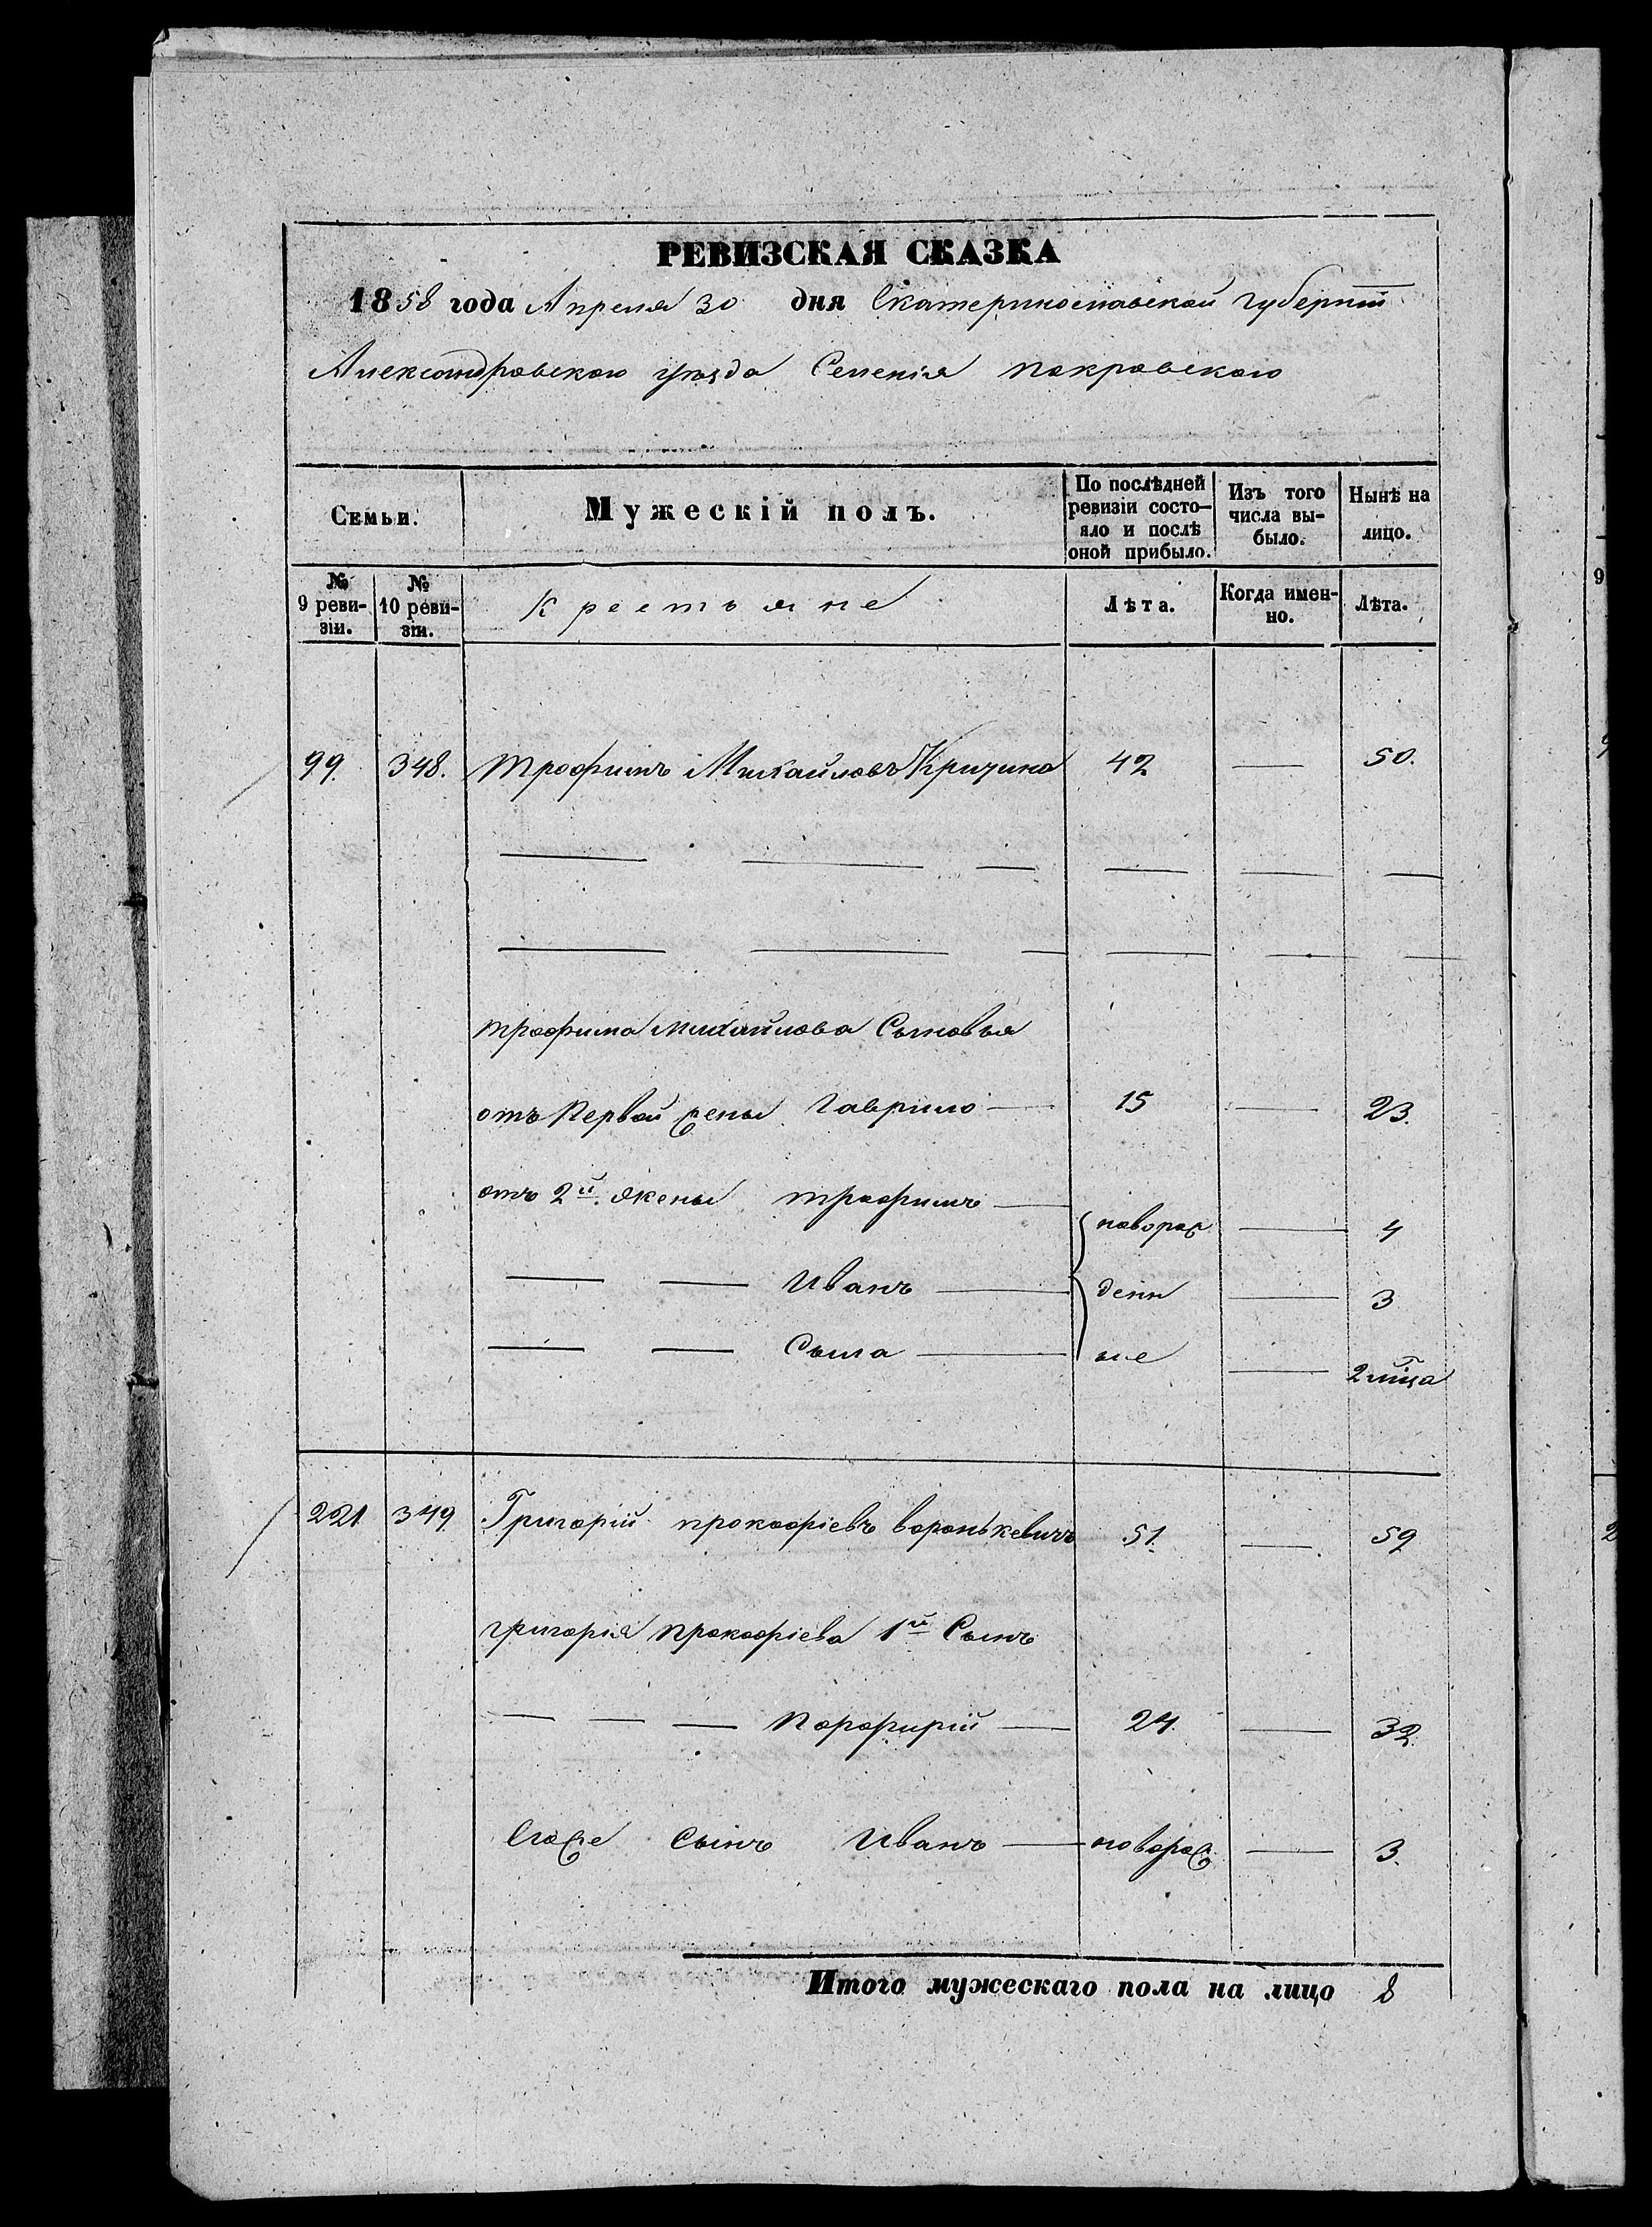 РЕВИЗСКАЯ СКАЗКА
1858 года Апреля 30 дня Екатеринославской губерніи
Александровского уѣзда Селенія покровского
Семьи.
Мужескій полъ.
По послѣдней ревизіи состо-яло и послѣ оной прибыло.
Изъ того числа вы-было.
Нынѣ на лицо.
№ 9 реви-зіи.
№ 10 реви-зіи.
Крестьяне
Лѣта.
Когда имен-но.
Лѣта.
99. 348. трофимъ Михайловъ 42 — 50.
— — — — — —
— — — — — —
трофима михайлова Сыновья
отъ Первой жены Гаврило — 15 — 23.
отъ 2й. жены трофимъ — новорож — 4
— — Иванъ — денн — 3
— — Сыла — ые — 2 мца
221. 349. Григорій прокофіевъ воронькевичъ 51. — 59
григорія прокофіева 1й Сынъ
— — — Порфирій — 24. — 32.
Егоже Сынъ Иванъ — новорож — 3.
Итого мужескаго пола на лицо 8
9
2